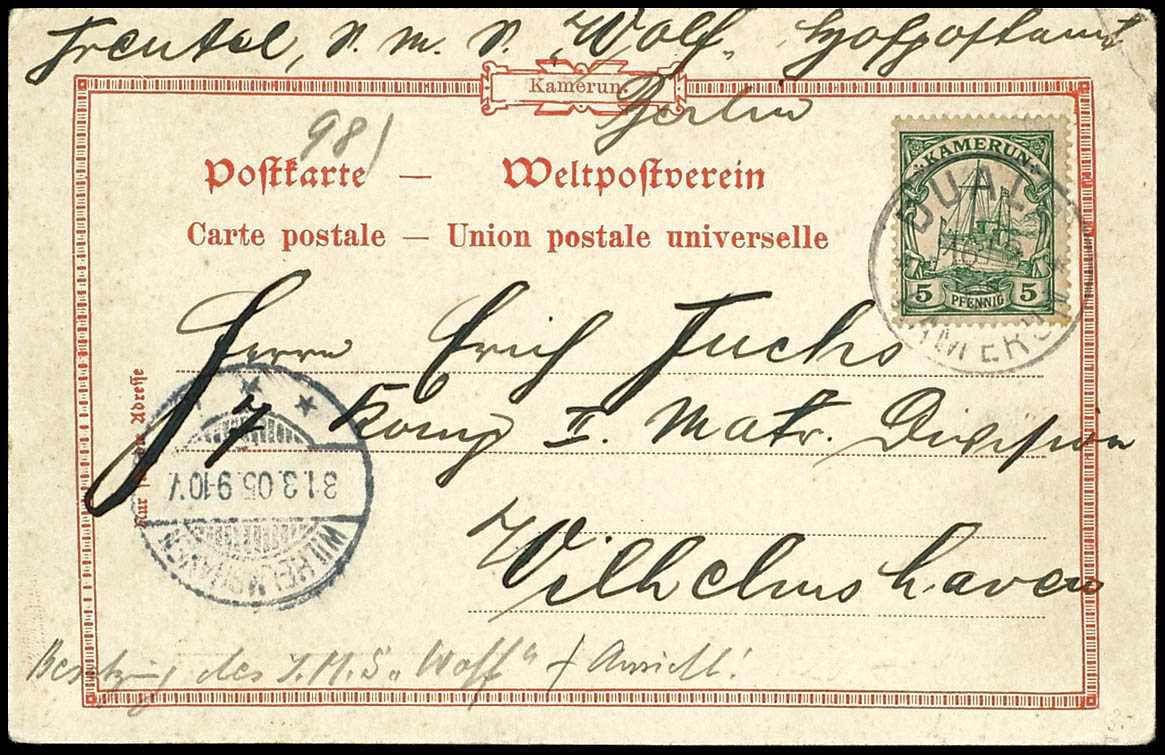 Frentzel, S. M. S. "Wolf" Hofpostamt
Berlin
Kamerun.
98)
Postkarte — Weltpostverein
Carte postale — Union postale universelle
KAMERUN
5 PFENNIG 5
DUALA
KAMERUN
Herrn Erich Fuchs
7 Komp II. Matr. Division
Wilhelmshaven
Nur für die Adresse
31.3.05. 9-10 V.
WILHELMSHAVEN
Besatzung des S.M.S. "Wolf" + Ansicht!